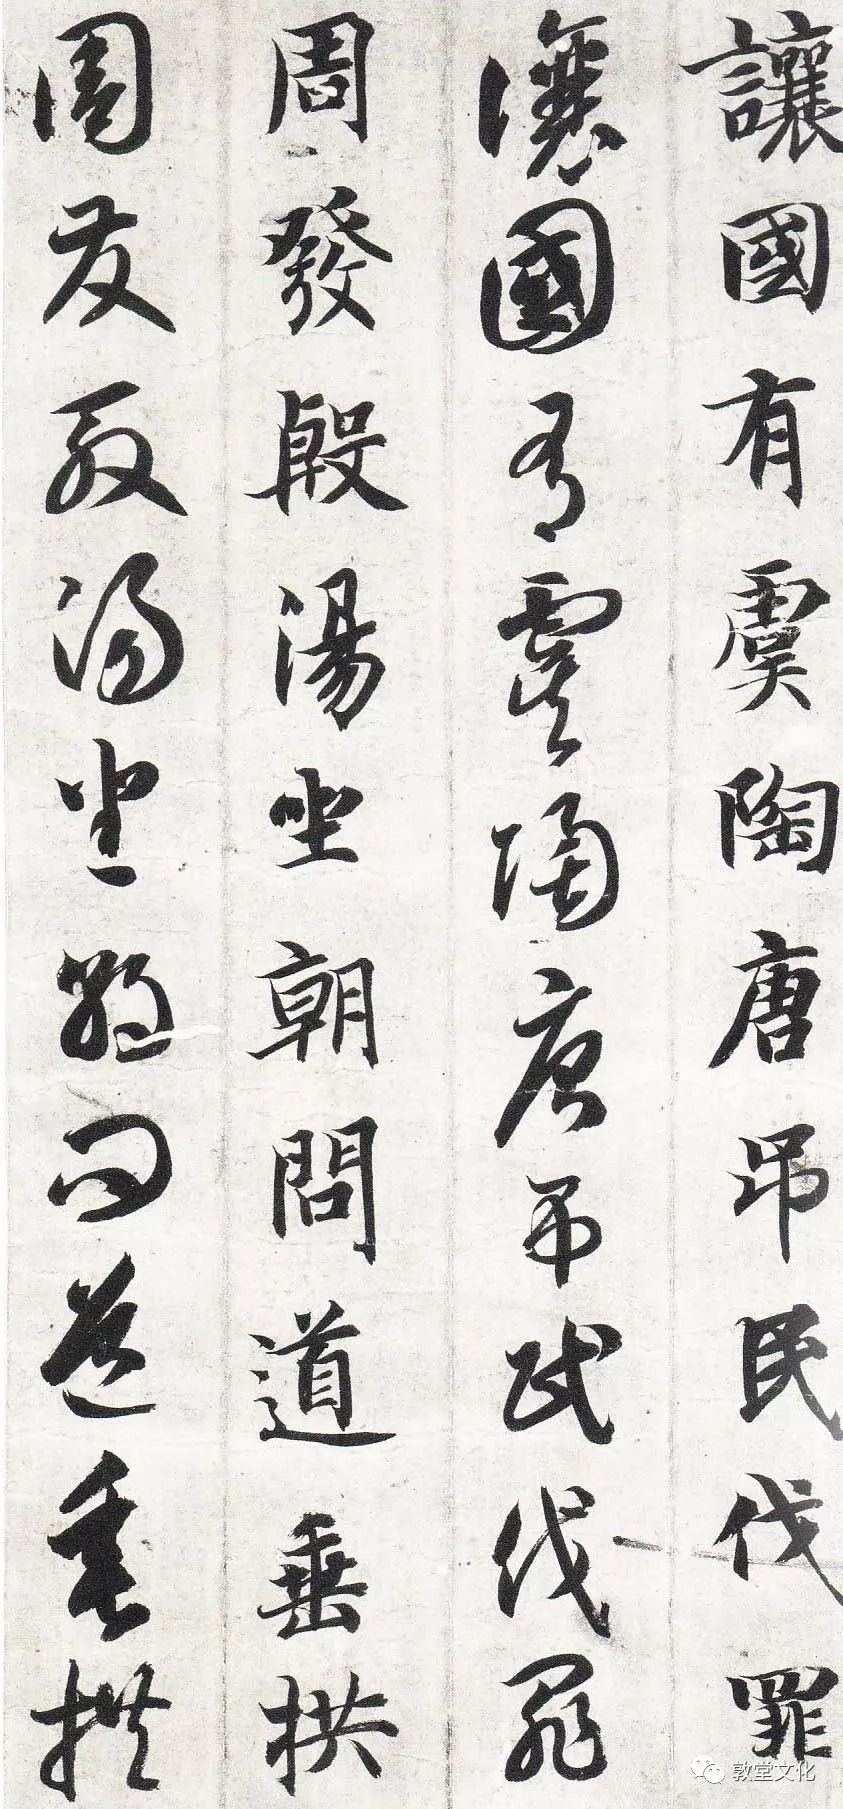 讓國有虞陶唐弔民伐罪
讓國有虞陶唐弔民伐罪
周發殷湯坐朝問道垂拱
周發殷湯坐朝問道垂拱
敦堂文化